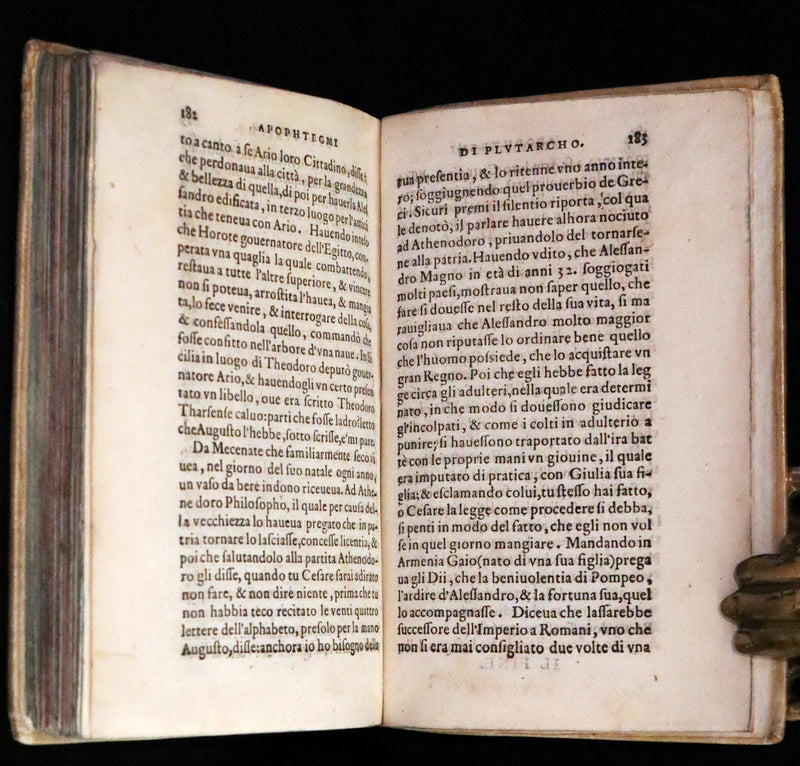 182
APOPHTEGMI
to a canto a se Ario loro Cittadino, disse,
che perdonaua alla città, per la grandezza
& bellezza di quella, di poi per hauerla Ales
sandro edificata, in terzo luogo per l'amici
tia che teneua con Ario. Hauendo inteso
che Horote gouernatore dell'Egitto, com-
perata vna quaglia la quale combattendo,
restaua a tutte l'altre superiore, & vincere
non si poteua, arrostita l'hauea, & mangia
ta, lo fece venire, & interrogare della cosa,
& confessandola quello, commandò che
fosse confitto nell'arbore d'vna naue. In Si
cilia in luogo di Theodoro deputò gouer-
natore Ario, & hauendogli vn certo presen
tato vn libello, oue era scritto Theodoro
Tharsense caluo: parti che fosse ladro: letto
che Augusto l'hebbe, sotto scrisse, e'mi pare.
Da Mecenate che familiarmente seco vi
uea, nel giorno del suo natale ogni anno,
un vaso da bere in dono riceueua. Ad Athe
nedoro Philosopho, il quale per causa del-
la vecchiezza lo haueua pregato che in pa-
tria tornare lo lasciasse, concesse licentia, &
poi che salutandolo alla partita Athenodo-
ro gli disse, quando tu Cesare sarai adirato
non fare, & non dire niente, prima che tu
non habbia teco recitato le venti quattro
lettere dell'alphabeto, presolo per la mano
Augusto, disse: anchora io ho bisogno della
DI PLVTARCHO.
183
tua presentia, & lo ritenne vno anno inte-
ro; soggiugnendo quel prouerbio de Gre-
ci. Sicuri premi il silentio riporta, col qua
le denotò, il parlare hauere alhora nociuto
ad Athenodoro, priuandolo del tornarse-
ne alla patria. Hauendo vdito, che Alessan-
dro Magno in età di anni 32. soggiogati
molti paesi, mostraua non saper quello, che
fare si douesse nel resto della sua vita, si ma
rauigliaua che Alessandro molto maggior
cosa non riputasse lo ordinare bene quello
che l'huomo possiede, che lo acquistare vn
gran Regno. Poi che egli hebbe fatto la leg
ge circa gli adulteri, nella quale era determi
nato, in che modo si douessono giudicare
gl'incolpati, & come i colti in adulterio a
punire; si hauessono traportato dall'ira bat
tè con le proprie mani vn giouine, il quale
era imputato di pratica, con Giulia sua fi-
glia; & esclamando colui, tu stesso hai fatto,
o Cesare la legge come procedere si debba,
si penti in modo del fatto, che egli non vol
se in quel giorno mangiare. Mandando in
Armenia Gaio (nato di vna sua figlia) prega
ua gli Dii, che la beniuolentia di Pompeo,
l'ardire d'Alessandro, & la fortuna sua, quel
lo accompagnasse. Diceua che lassarebbe
successore dell'Imperio a Romani, vno che
non si era mai consigliato due volte di vna